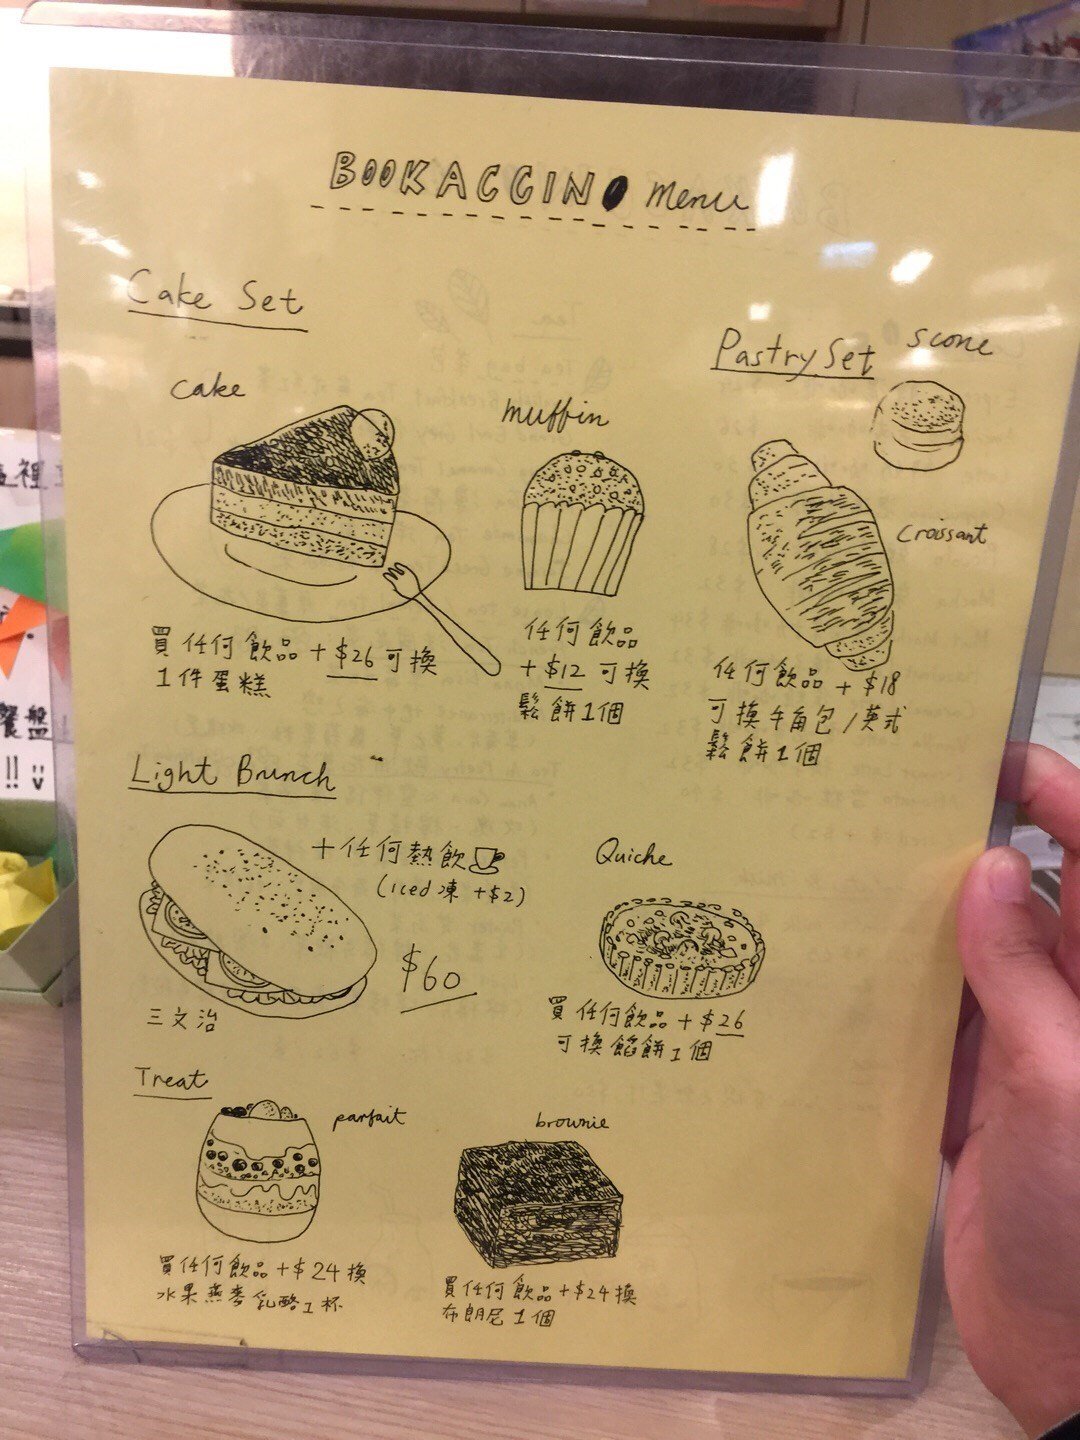 BOOKACCINO menu
Cake Set
cake
買任何飲品+$26可換
1件蛋糕
muffin
任何飲品
+$12可換
鬆餅1個
Pastry Set
scone
croissant
任何飲品+$18
可換牛角包/英式
鬆餅1個
Light Brunch
+任何熱飲
(iced 凍 +$2)
$60
三文治
Quiche
買任何飲品+$26
可換餡餅1個
Treat
parfait
買任何飲品+$24換
水果燕麥乳酪1杯
brownie
買任何飲品+$24換
布朗尼1個
裡
餐盤
!!